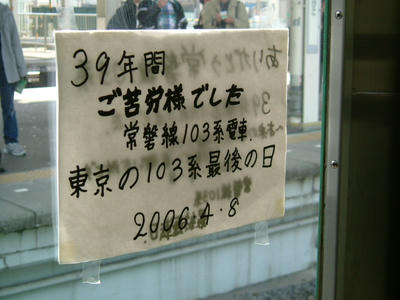 39年間
ご苦労様でした
常磐線103系電車
東京の103系最後の日
2006.4.8